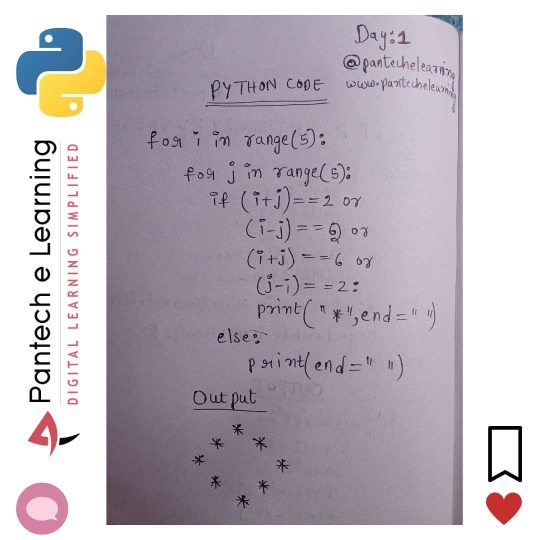 Day:1
@pantechelearning
www.pantechelearning
PYTHON CODE
for i in range(5):
for j in range(5):
if (i+j)==2 or
(i-j)==2 or
(i+j)==6 or
(j-i)==2:
print("*",end=" ")
else:
print(end=" ")
Output
*
* *
* *
* *
*
Pantech e Learning
DIGITAL LEARNING SIMPLIFIED